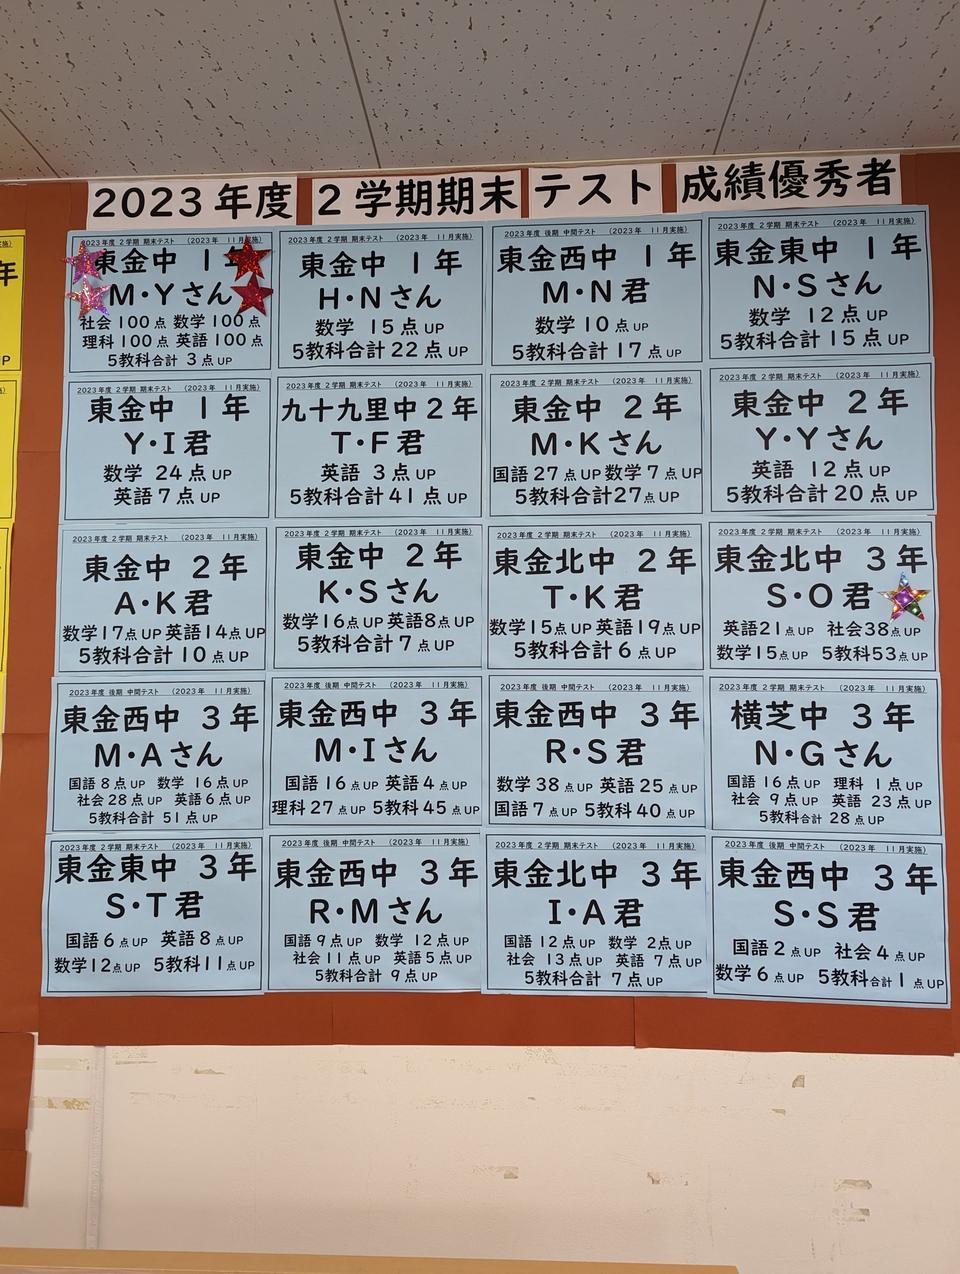 2023年度 2学期期末 テスト 成績優秀者
2023年度 2学期 期末テスト （2023年 11月実施）
東金中 1年
M・Yさん
社会100点 数学100点
理科100点 英語100点
5教科合計 3点UP
2023年度 2学期 期末テスト （2023年 11月実施）
東金中 1年
H・Nさん
数学 15点UP
5教科合計22点UP
2023年度 後期 中間テスト （2023年 11月実施）
東金西中 1年
M・N君
数学 10点UP
5教科合計17点UP
2023年度 2学期 期末テスト （2023年 11月実施）
東金東中 1年
N・Sさん
数学 12点UP
5教科合計15点UP
2023年度 2学期 期末テスト （2023年 11月実施）
東金中 1年
Y・I君
数学 24点UP
英語7点UP
2023年度 2学期 期末テスト （2023年 11月実施）
九十九里中2年
T・F君
英語 3点UP
5教科合計41点UP
2023年度 2学期 期末テスト （2023年 11月実施）
東金中 2年
M・Kさん
国語27点UP 数学7点UP
5教科合計27点UP
2023年度 2学期 期末テスト （2023年 11月実施）
東金中 2年
Y・Yさん
英語 12点UP
5教科合計20点UP
2023年度 2学期 期末テスト （2023年 11月実施）
東金中 2年
A・K君
数学17点UP 英語14点UP
5教科合計10点UP
2023年度 2学期 期末テスト （2023年 11月実施）
東金中 2年
K・Sさん
数学16点UP 英語8点UP
5教科合計7点UP
2023年度 2学期 期末テスト （2023年 11月実施）
東金北中 2年
T・K君
数学15点UP 英語19点UP
5教科合計6点UP
2023年度 2学期 期末テスト （2023年 11月実施）
東金北中 3年
S・O君
英語21点UP 社会38点UP
数学15点UP 5教科53点UP
2023年度 後期 中間テスト （2023年 11月実施）
東金西中 3年
M・Aさん
国語8点UP 数学16点UP
社会28点UP 英語6点UP
5教科合計 51点UP
2023年度 後期 中間テスト （2023年 11月実施）
東金西中 3年
M・Iさん
国語16点UP 英語4点UP
理科27点UP 5教科45点UP
2023年度 後期 中間テスト （2023年 11月実施）
東金西中 3年
R・S君
数学38点UP 英語25点UP
国語7点UP 5教科40点UP
2023年度 2学期 期末テスト （2023年 11月実施）
横芝中 3年
N・Gさん
国語16点UP 理科 1点UP
社会 9点UP 英語 23点UP
5教科合計 28点UP
2023年度 2学期 期末テスト （2023年 11月実施）
東金東中 3年
S・T君
国語6点UP 英語8点UP
数学12点UP 5教科11点UP
2023年度 後期 中間テスト （2023年 11月実施）
東金西中 3年
R・Mさん
国語9点UP 数学 12点UP
社会11点UP 英語5点UP
5教科合計 9点UP
2023年度 2学期 期末テスト （2023年 11月実施）
東金北中 3年
I・A君
国語12点UP 数学 2点UP
社会 13点UP 英語 7点UP
5教科合計 7点UP
2023年度 後期 中間テスト （2023年 11月実施）
東金西中 3年
S・S君
国語2点UP 社会4点UP
数学6点UP 5教科合計1点UP